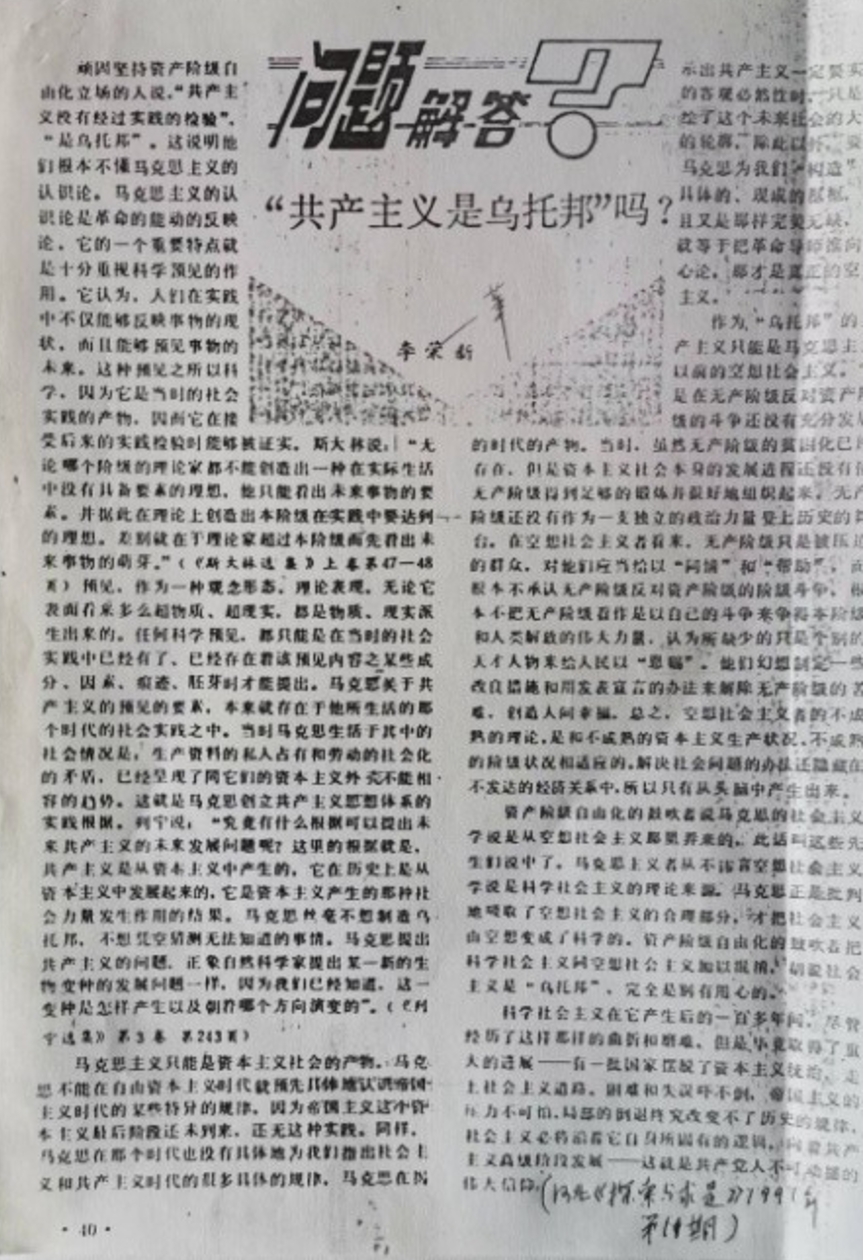 问题解答?
“共产主义是乌托邦”吗?
李荣新
顽固坚持资产阶级自
由化立场的人说,“共产主
义没有经过实践的检验”,
“是乌托邦”。这说明他
们根本不懂马克思主义的
认识论。马克思主义的认
识论是革命的能动的反映
论,它的一个重要特点就
是十分重视科学预见的作
用。它认为,人们在实践
中不仅能够反映事物的现
状,而且能够预见事物的
未来。这种预见之所以科
学,因为它是当时的社会
实践的产物,因而它在接
受后来的实践检验时能够被证实。斯大林说:“无
论哪个阶级的理论家都不能创造出一种在实际生活
中没有具备要素的理想,他只能看出未来事物的要
素,并据此在理论上创造出本阶级在实践中要达到
的理想。差别就在于理论家超过本阶级而先看出未
来事物的萌芽。”(《斯大林选集》上卷第47—48
页)预见,作为一种观念形态,理论表现,无论它
表面看来多么超物质、超现实,都是物质、现实派
生出来的。任何科学预见,都只能是在当时的社会
实践中已经有了、已经存在着该预见内容之某些成
分、因素、痕迹、胚芽时才能提出。马克思关于共
产主义的预见的要素,本来就存在于他所生活的那
个时代的社会实践之中。当时马克思生活于其中的
社会情况是,生产资料的私人占有和劳动的社会化
的矛盾,已经呈现了同它们的资本主义外壳不能相
容的趋势。这就是马克思创立共产主义思想体系的
实践根据。列宁说:“究竟有什么根据可以提出未
来共产主义的未来发展问题呢?这里的根据就是,
共产主义是从资本主义中产生的,它在历史上是从
资本主义中发展起来的,它是资本主义产生的那种社
会力量发生作用的结果。马克思丝毫不想制造乌
托邦,不想凭空猜测无法知道的事情。马克思提出
共产主义的问题,正象自然科学家提出某一新的生
物变种的发展问题一样,因为我们已经知道,这一
变种是怎样产生以及朝着哪个方向演变的”。(《列
宁选集》第3卷 第243页)
马克思主义只能是资本主义社会的产物。马克
思不能在自由资本主义时代就预先具体地认识帝国
主义时代的某些特异的规律,因为帝国主义这个资
本主义最后阶段还未到来,还无这种实践。同样,
马克思在那个时代也没有具体地为我们指出社会主
义和共产主义时代的很多具体的规律,马克思在历
·40·
示出共产主义一定要实
的客观必然性时,只是
绘了这个未来社会的大
的轮廓,除此以外,要
马克思为我们“构造”
具体的、现成的
且又是那样完美无缺,
就等于把革命导师推向
心论,那才是真正的空
主义。
作为“乌托邦”的
产主义只能是马克思主
以前的空想社会主义。
是在无产阶级反对资产
级的斗争还没有充分发
的时代的产物。当时,虽然无产阶级的贫困化已
存在,但是资本主义社会本身的发展进程还没有
无产阶级得到足够的锻炼并很好地组织起来,无产
阶级还没有作为一支独立的政治力量登上历史的
台。在空想社会主义者看来,无产阶级只是被压
的群众,对他们应当给以“同情”和“帮助”,而
根本不承认无产阶级反对资产阶级的阶级斗争,根
本不把无产阶级看作是以自己的斗争来争得本阶级
和人类解放的伟大力量,认为所缺少的只是个别的
天才人物来给人民以“恩赐”。他们幻想制定一些
改良措施和用发表宣言的办法来解除无产阶级的苦
难,创造人间幸福。总之,空想社会主义者的不成
熟的理论,是和不成熟的资本主义生产状况,不成熟
的阶级状况相适应的,解决社会问题的办法还隐藏在
不发达的经济关系中,所以只有从头脑中产生出来。
资产阶级自由化的鼓吹者说马克思的社会主义
学说是从空想社会主义那里弄来的,此话叫这些先
生们说中了。马克思主义者从不讳言空想社会主义
学说是科学社会主义的理论来源。马克思正是批判
地吸取了空想社会主义的合理部分,才把社会主义
由空想变成了科学的。资产阶级自由化的鼓吹者把
科学社会主义同空想社会主义加以混淆,胡说社会
主义是“乌托邦”,完全是别有用心的。
科学社会主义在它产生后的一百多年间,尽管
经历了这样那样的曲折和磨难,但是毕竟取得了重
大的进展——有一批国家摆脱了资本主义统治,走
上社会主义道路。困难和失误吓不倒,帝国主义的
压力不可怕,局部的倒退终究改变不了历史的规律,
社会主义必将沿着它自身所固有的逻辑,向着共产
主义高级阶段发展——这就是共产党人不可动摇的
伟大信仰。
(《探索与求是》1991年
第 期)